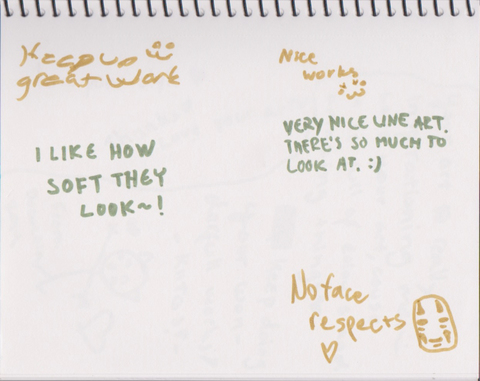 Keep up
great work
I LIKE HOW
SOFT THEY
LOOK~!
Nice
works
VERY NICE LINE ART.
THERE'S SO MUCH TO
LOOK AT. :)
No face
respects